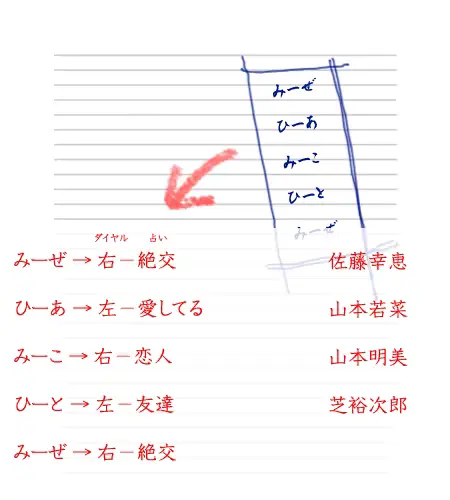 みーぜ
ひーあ
みーこ
ひーと
みーぜ
ダイヤル 占い
みーぜ→右－絶交 佐藤幸恵
ひーあ→左－愛してる 山本若菜
みーこ→右－恋人 山本明美
ひーと→左－友達 芝裕次郎
みーぜ→右－絶交